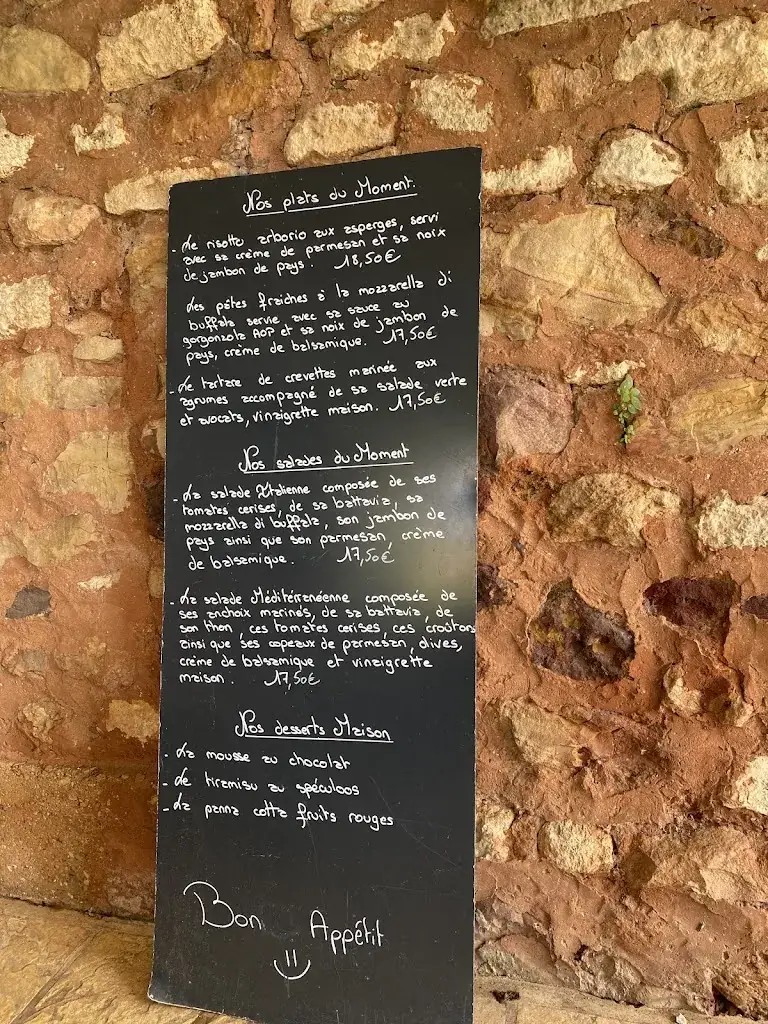 Nos plats du Moment.
- Le risotto arborio aux asperges, servi
avec sa crème de parmesan et sa noix
de jambon de pays. 18,50€
Les pâtes fraîches à la mozzarella di
buffala servie avec sa sauce au
gorgonzola AOP et sa noix de jambon de
pays, crème de balsamique. 17,50€
- Le tartare de crevettes marinée aux
agrumes accompagné de sa salade verte
et avocats, vinaigrette maison. 17,50€
Nos salades du Moment
- La salade Italienne composée de ses
tomates cerises, de sa battavia, sa
mozzarella di buffala, son jambon de
pays ainsi que son parmesan, crème
de balsamique. 17,50€
- La salade Méditérranéenne composée de
ses anchoix marinés, de sa battavia, de
son thon, ces tomates cerises, ces croûtons
ainsi que ses copeaux de parmesan, olives,
crème de balsamique et vinaigrette
maison. 17,50€
Nos desserts Maison
- La mousse au chocolat
- Le tiramisu au spéculoos
- La panna cotta fruits rouges
Bon Appétit